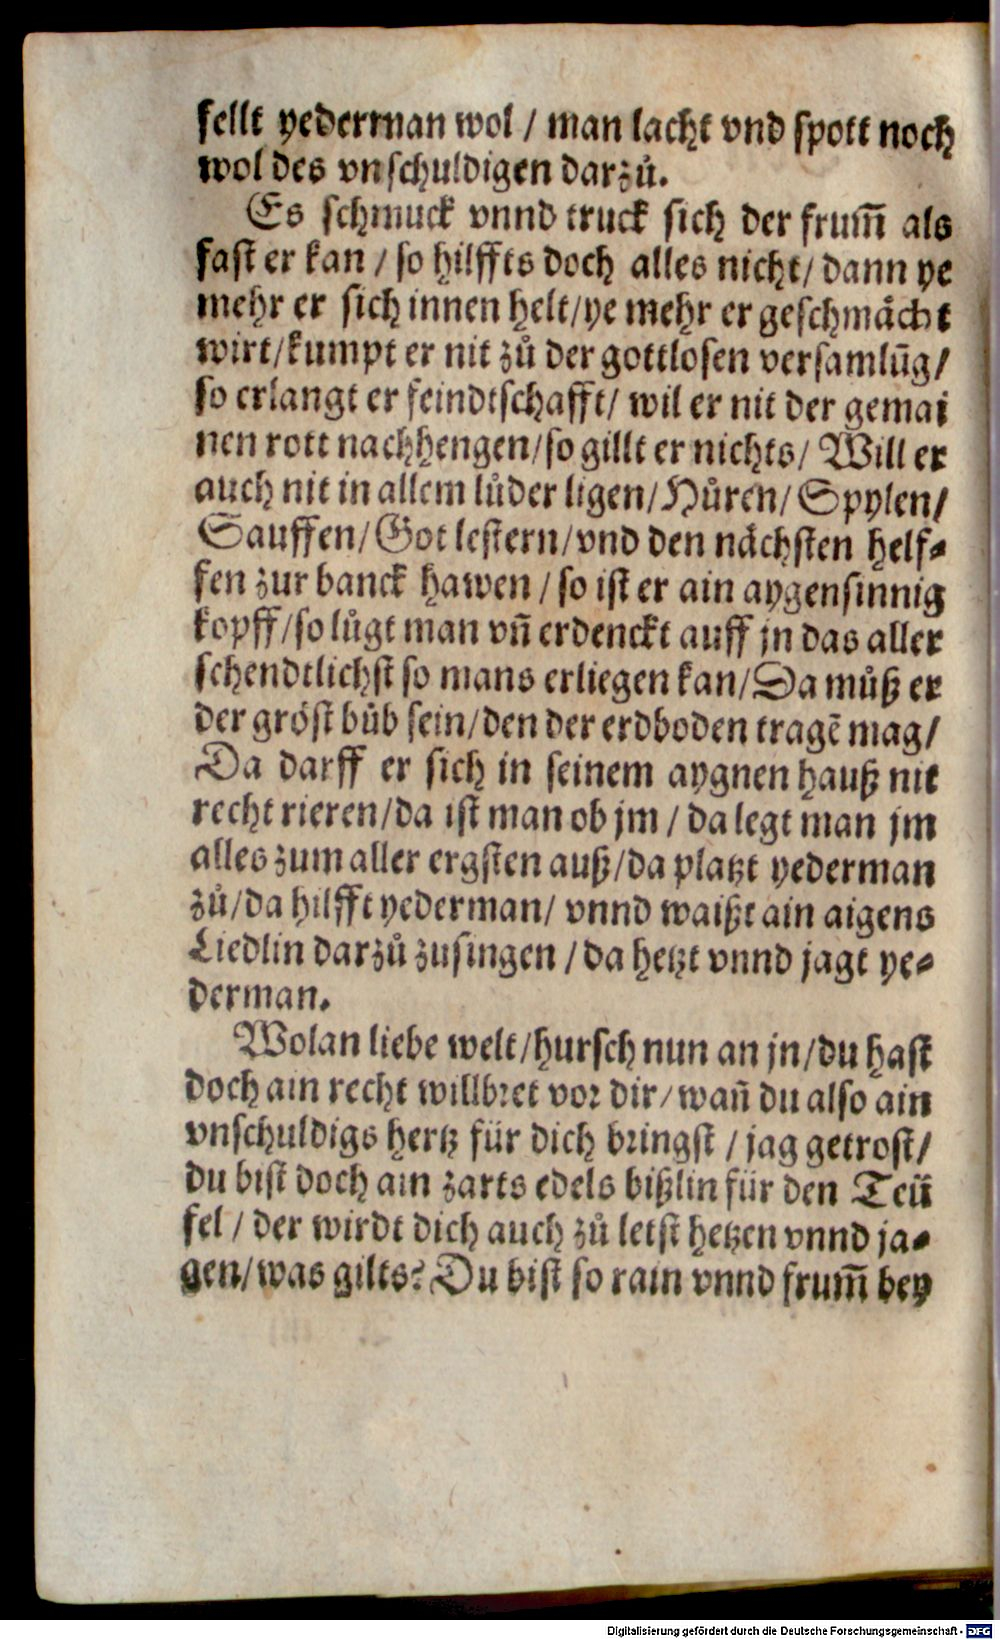 fellt yederman wol / man lacht vnd spott noch
wol des vnschuldigen darzuͦ.
Es schmuck vnnd truck sich der frum̃ als
fast er kan / so hilffts doch alles nicht / dann ye
mehr er sich innen helt / ye mehr er geschmaͤcht
wirt / kumpt er nit zuͦ der gottlosen versamlũg /
so erlangt er feindtschafft / wil er nit der gemai
nen rott nachhengen / so gillt er nichts / Will er
auch nit in allem luͦder ligen / Huͦren / Spylen /
Sauffen / Got lestern / vnd den naͤchsten helf⸗
fen zur banck hawen / so ist er ain aygensinnig
kopff / so luͤgt man vñ erdenckt auff jn das aller
schendtlichst so mans erliegen kan / Da muͦß er
der groͤst buͦb sein / den der erdboden tragẽ mag /
Da darff er sich in seinem aygnen hauß nit
recht rieren / da ist man ob jm / da legt man jm
alles zum aller ergsten auß / da platzt yederman
zuͦ / da hilfft yederman / vnnd waißt ain aigens
Liedlin darzuͦ zusingen / da hetzt vnnd jagt ye⸗
derman.
Wolan liebe welt / hursch nun an jn / du hast
doch ain recht willbret vor dir / wañ du also ain
vnschuldigs hertz für dich bringst / jag getrost /
du bist doch ain zarts edels bißlin für den Teü
fel / der wirdt dich auch zuͦ letst hetzen vnnd ja⸗
gen / was gilts? Du bist so rain vnnd frum̃ bey
Digitalisierung gefördert durch die Deutsche Forschungsgemeinschaft - DFG